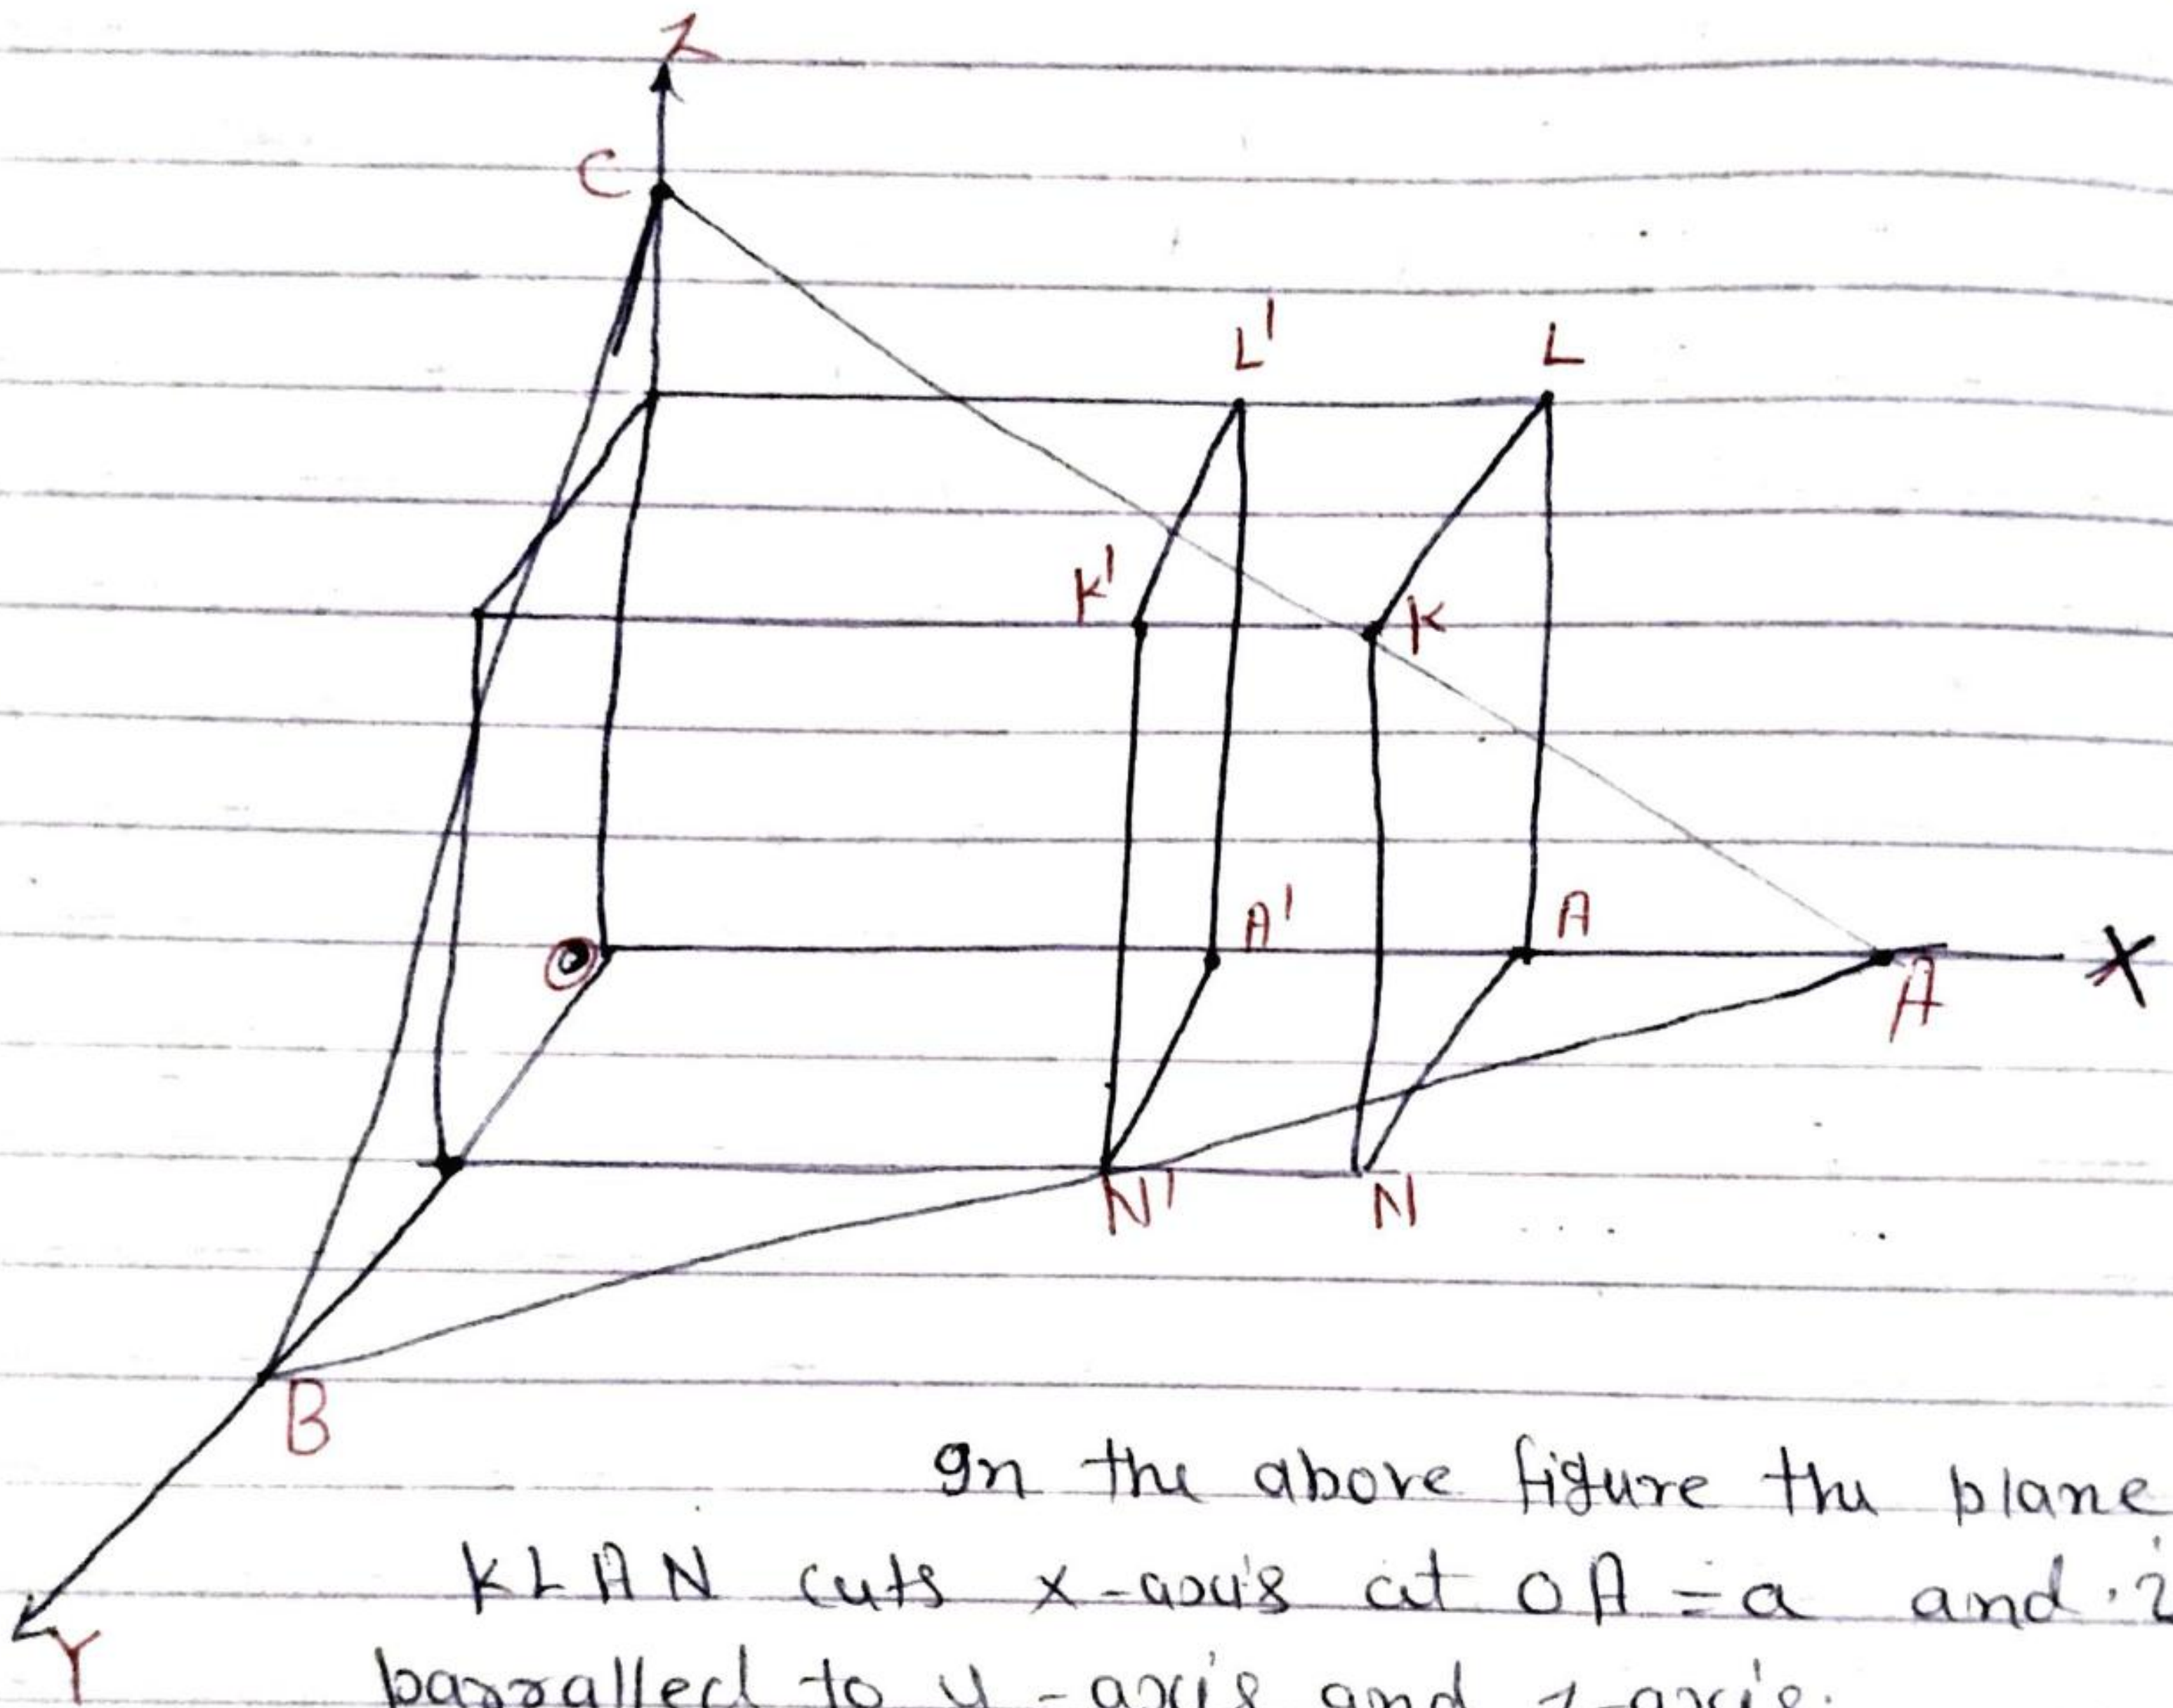 Z
C
L' L
K' K
O A' A X
A
N' N
B
In the above figure the plane
KLAN cuts x-axis at OA = a and
Y
parralled to y-axis and z-axis.